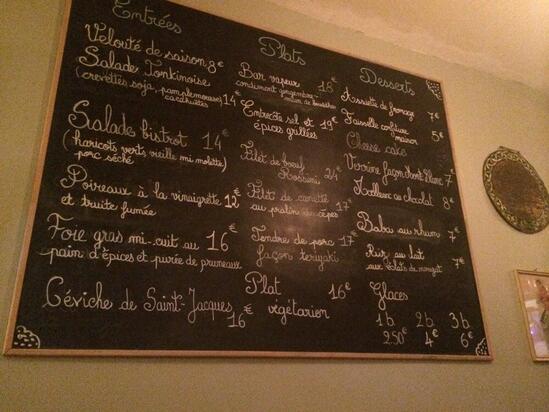 Entrées
Velouté de saison 8€
Salade Tonkinoise
(crevettes, soja, pamplemousse, cacahuètes) 14€
Salade bistrot 14€
(haricots verts, vieille mimolette, porc séché)
Poireaux à la vinaigrette 12€
et truite fumée
Foie gras mi-cuit au 16€
pain d'épices et purée de pruneaux
Céviche de Saint-Jacques
16€
Plats
Bar vapeur 18€
condiment gingembre
Entrecôte sel et 19€
épices grillées
Filet de bœuf
Rossini 24€
Filet de canette
au pralin de cèpes 17€
Tendre de porc 17€
façon teriyaki
Plat 16€
végétarien
Desserts
Assiette de fromage
7€
Faisselle confiture
maison 5€
Cheese cake
Verrine façon Mont Blanc 7€
Moelleux au chocolat
8€
Baba au rhum 7€
Riz au lait
aux éclats de nougat 7€
Glaces
1b 2b 3b
2.50€ 4€ 6€